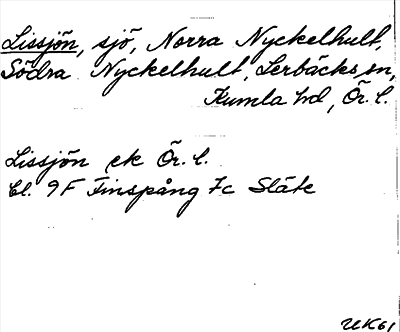 Lissjön, sjö, Norra Nyckelhult,
Södra Nyckelhult, Lerbäcks sn,
Kumla hd, Ör. l.
Lissjön ek Ör. l.
Bl. 9F Finspång 7c Släte
UK61